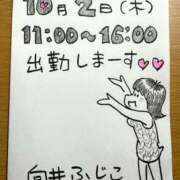 10月2日(木)
11:00〜16:00
出勤しまーす♥♥
向井ふじこ